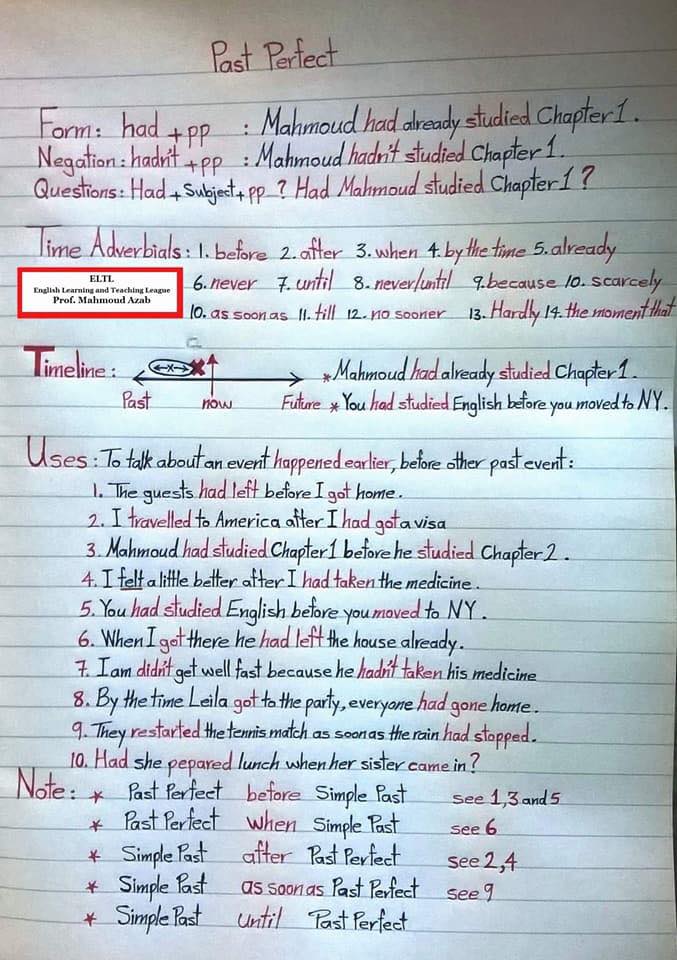 Past Perfect
Form: had + pp : Mahmoud had already studied Chapter 1.
Negation: hadn't + pp : Mahmoud hadn't studied Chapter 1.
Questions: Had + Subject + pp ? Had Mahmoud studied Chapter 1 ?
Time Adverbials: 1. before 2. after 3. when 4. by the time 5. already
ELTL
English Learning and Teaching League
Prof. Mahmoud Azab
6. never 7. until 8. never/until 9. because 10. scarcely
10. as soon as 11. till 12. no sooner 13. Hardly 14. the moment that
Timeline: *Mahmoud had already studied Chapter 1.
Past now Future * You had studied English before you moved to NY.
Uses: To talk about an event happened earlier, before other past event:
1. The guests had left before I got home.
2. I travelled to America after I had got a visa
3. Mahmoud had studied Chapter 1 before he studied Chapter 2.
4. I felt a little better after I had taken the medicine.
5. You had studied English before you moved to NY.
6. When I got there he had left the house already.
7. I am didn't get well fast because he hadn't taken his medicine
8. By the time Leila got to the party, everyone had gone home.
9. They restarted the tennis match as soon as the rain had stopped.
10. Had she pepared lunch when her sister came in?
Note: * Past Perfect before Simple Past see 1,3 and 5
* Past Perfect when Simple Past see 6
* Simple Past after Past Perfect see 2,4
* Simple Past as soon as Past Perfect see 9
* Simple Past until Past Perfect